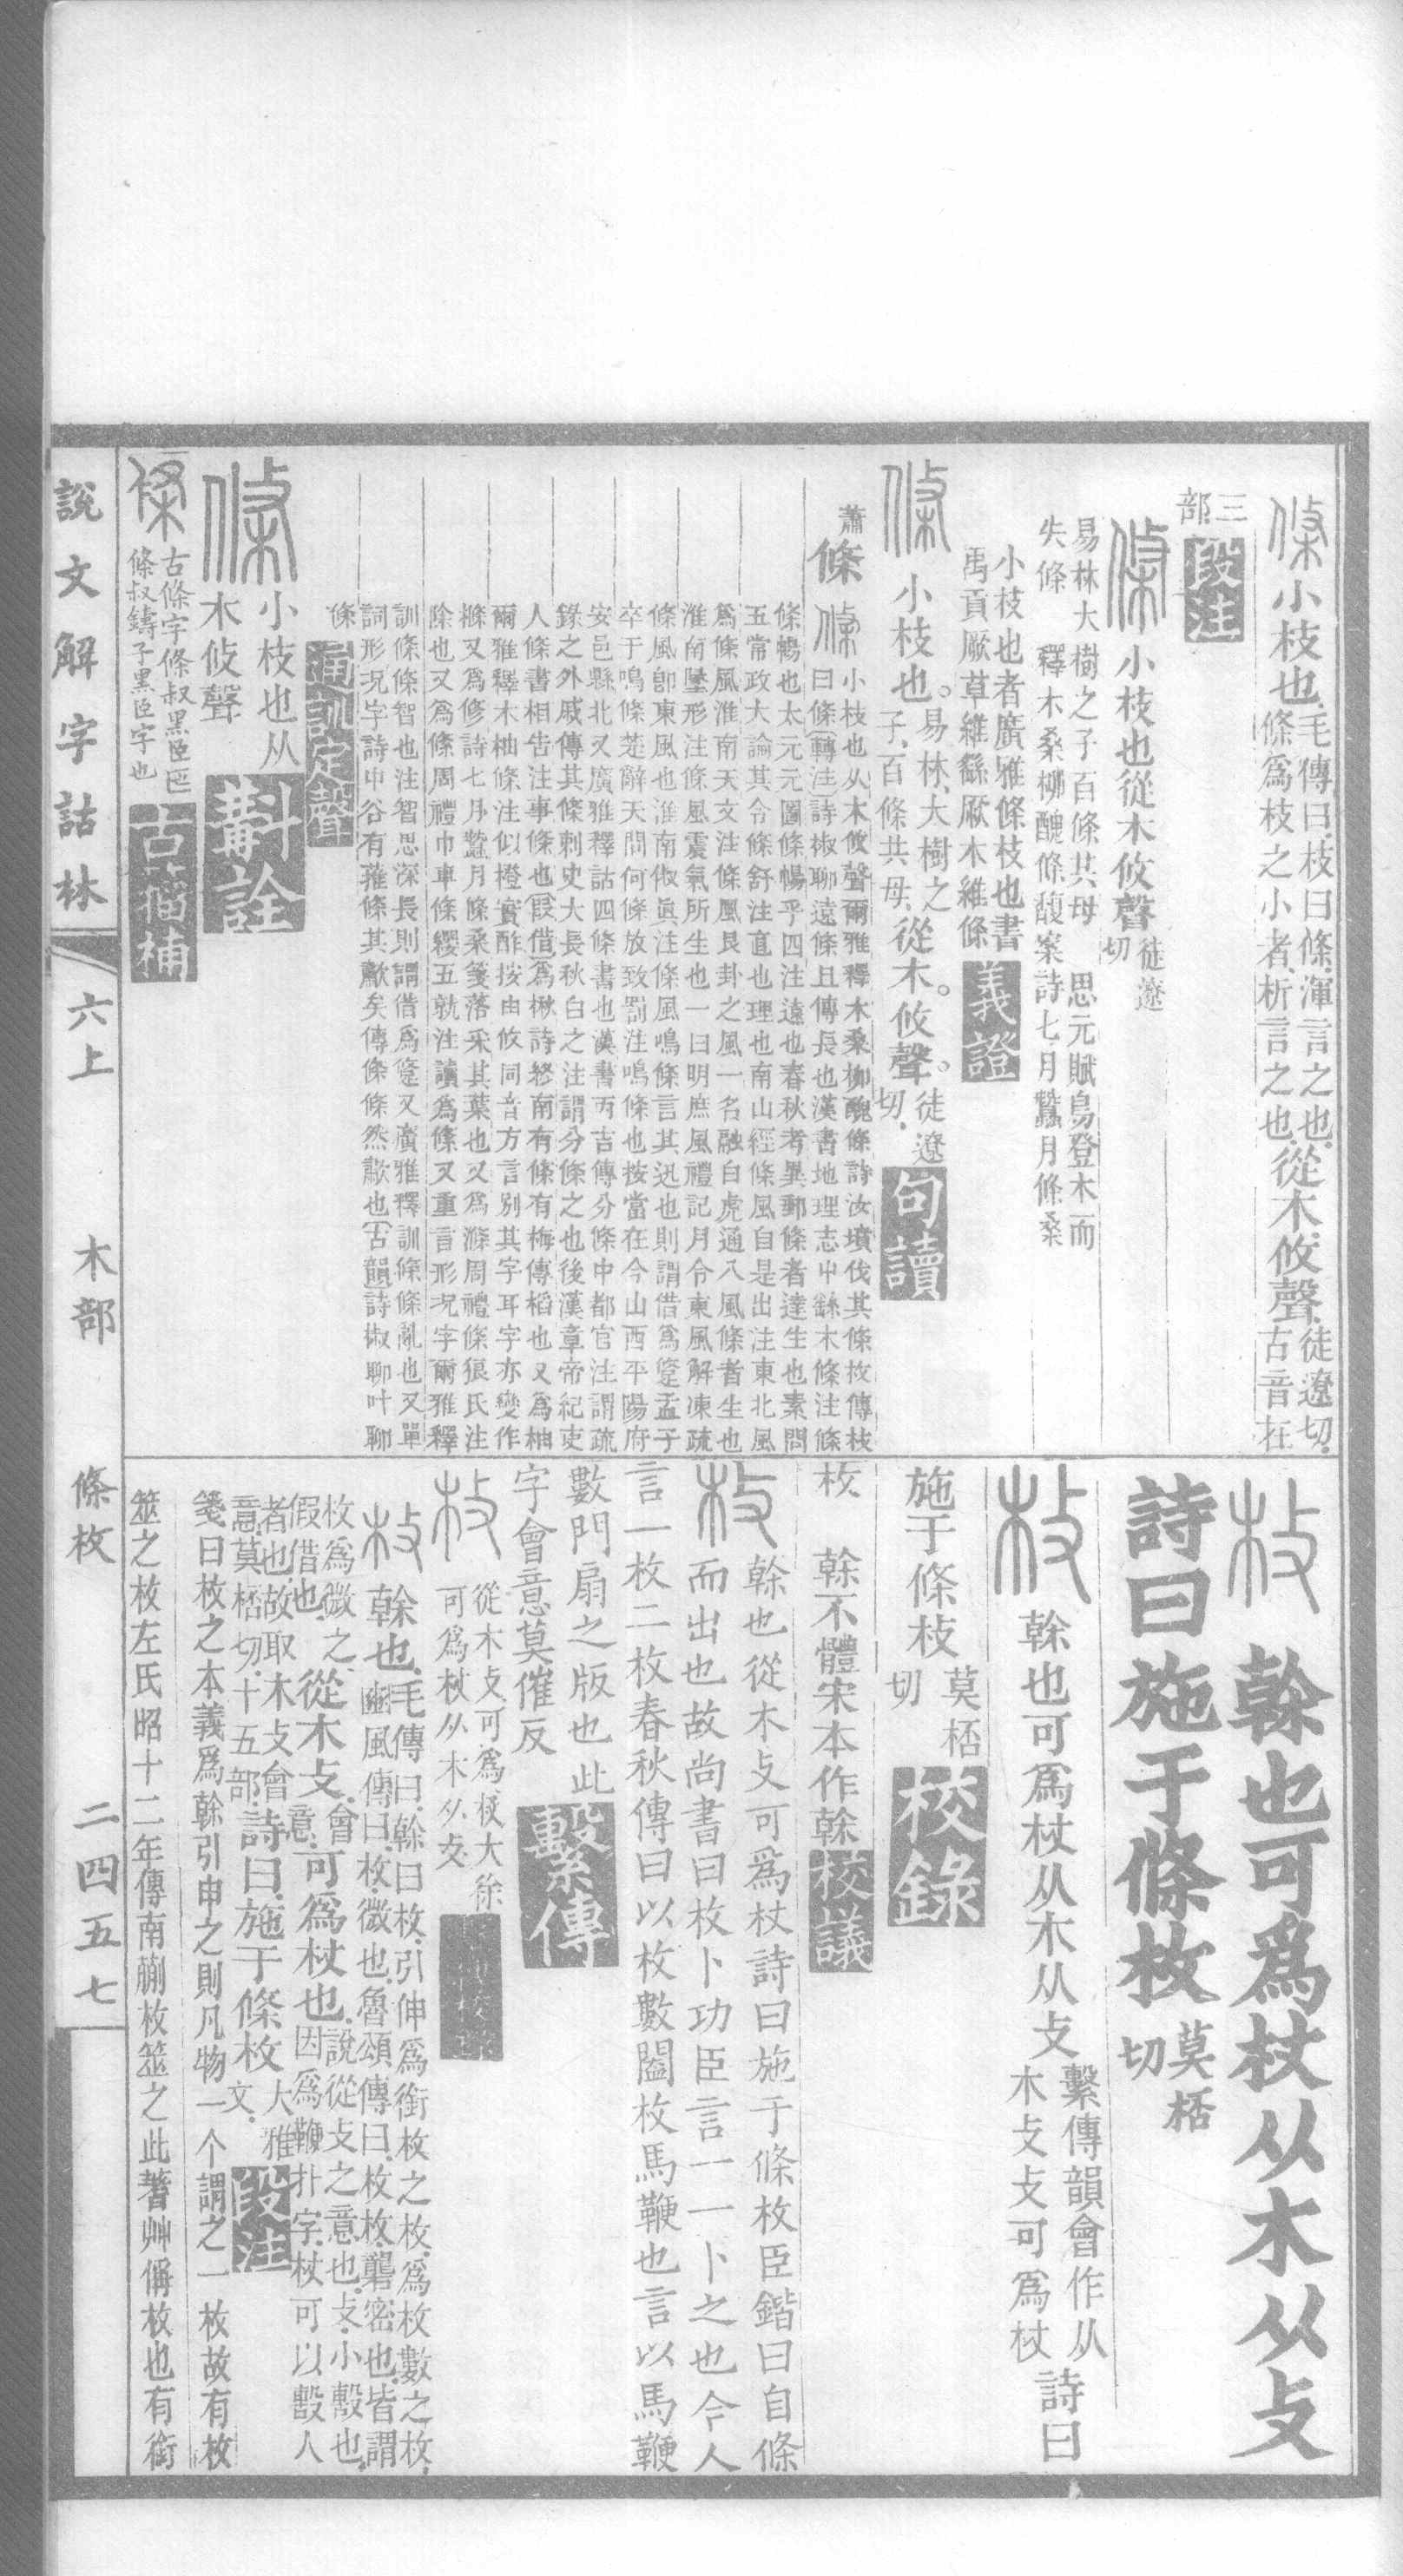 條小枝也毛傳曰枝曰條渾言之也
條爲枝之小者析言之也從木攸聲徒遼切
古音在
三部
段注
條小枝也從木攸聲徒遼切
易林大樹之子百條共母 思元賦鳥登木而
失條 釋木桑柳醜條馥案詩七月蠶月條桑
小枝也者廣雅條枝也書
禹貢厥草維繇厥木維條
義證
條小枝也易林大樹之
子百條共母從木攸聲徒遼
切
句讀
蕭
條
條小枝也从木攸聲爾雅釋木桑柳醜條詩汝墳伐其條枚傳枝
曰條轉注詩椒聊遠條且傳長也漢書地理志屮繇木條注條
條暢也太元元圖條暢乎四注遠也春秋考異郵條者達生也素問
五常政大論其令條舒注直也理也南山經條風自是出注東北風
爲條風淮南天文注條風艮卦之風一名融白虎通八風條者生也
淮南墬形注條風震氣所生也一曰明庶風禮記月令東風解凍疏
條風卽東風也淮南俶眞注條風鳴條言其迅也則謂借爲䠄孟子
卒于鳴條楚辭天問何條放致罰注鳴條也按當在今山西平陽府
安邑縣北又廣雅釋詁四條書也漢書丙吉傳分條中都官注謂疏
錄之外戚傳其條刺史大長秋白之注謂分條之也後漢章帝紀吏
人條書相告注事條也叚借爲楸詩終南有條有梅傳稻也又爲柚
爾雅釋木柚條注似橙實酢按由攸同音方言別其字耳字亦變作
樤又爲修詩七月蠶月條桑箋落采其葉也又爲滌周禮條狼氏注
除也又爲絛周禮巾車條纓五就注讀爲絛又重言形況字爾雅釋
訓條條智也注智思深長則謂借爲䠄又廣雅釋訓條條亂也又單
詞形況字詩中谷有蓷條其歗矣傳條條然歗也古韻詩椒聊叶聊
條
通訓定聲
條小枝也从
木攸聲
斠詮
古條字條叔黑臣匜
條叔鑄子黑臣字也
古籀補
枚榦也可爲杖从木从攴
詩曰施于條枚莫桮
切
枚榦也可爲杖从木从攴繫傳韻會作从
木攴攴可爲杖詩曰
施于條枚莫桮
切
校錄
枚 榦不體宋本作榦
校議
枚榦也從木攴可爲杖詩曰施于條枚臣鍇曰自條
而出也故尚書曰枚卜功臣言一一卜之也今人
言一枚二枚春秋傳曰以枚數闔枚馬鞭也言以馬鞭
數門扇之版也此
字會意莫催反
繫傳
枚從木攴可爲杖大徐
可爲杖从木从攴
枚榦也毛傳曰榦曰枚引伸爲銜枚之枚爲枚數之枚
豳風傳曰枚微也魯頌傳曰枚枚礱密也皆謂
枚爲微之
假借也從木攴會
意可爲杖也說從攴之意也攴小擊也
因爲鞭扑字杖可以毄人
者也故取木攴會
意莫桮切十五部詩曰施于條枚大雅
文
段注
箋曰枚之本義爲榦引申之則凡物一个謂之一枚故有枚
筮之枚左氏昭十二年傳南蒯枚筮之此蓍艸偁枚也有銜
說文解字詁林
六上
木部
條枚
二四五七